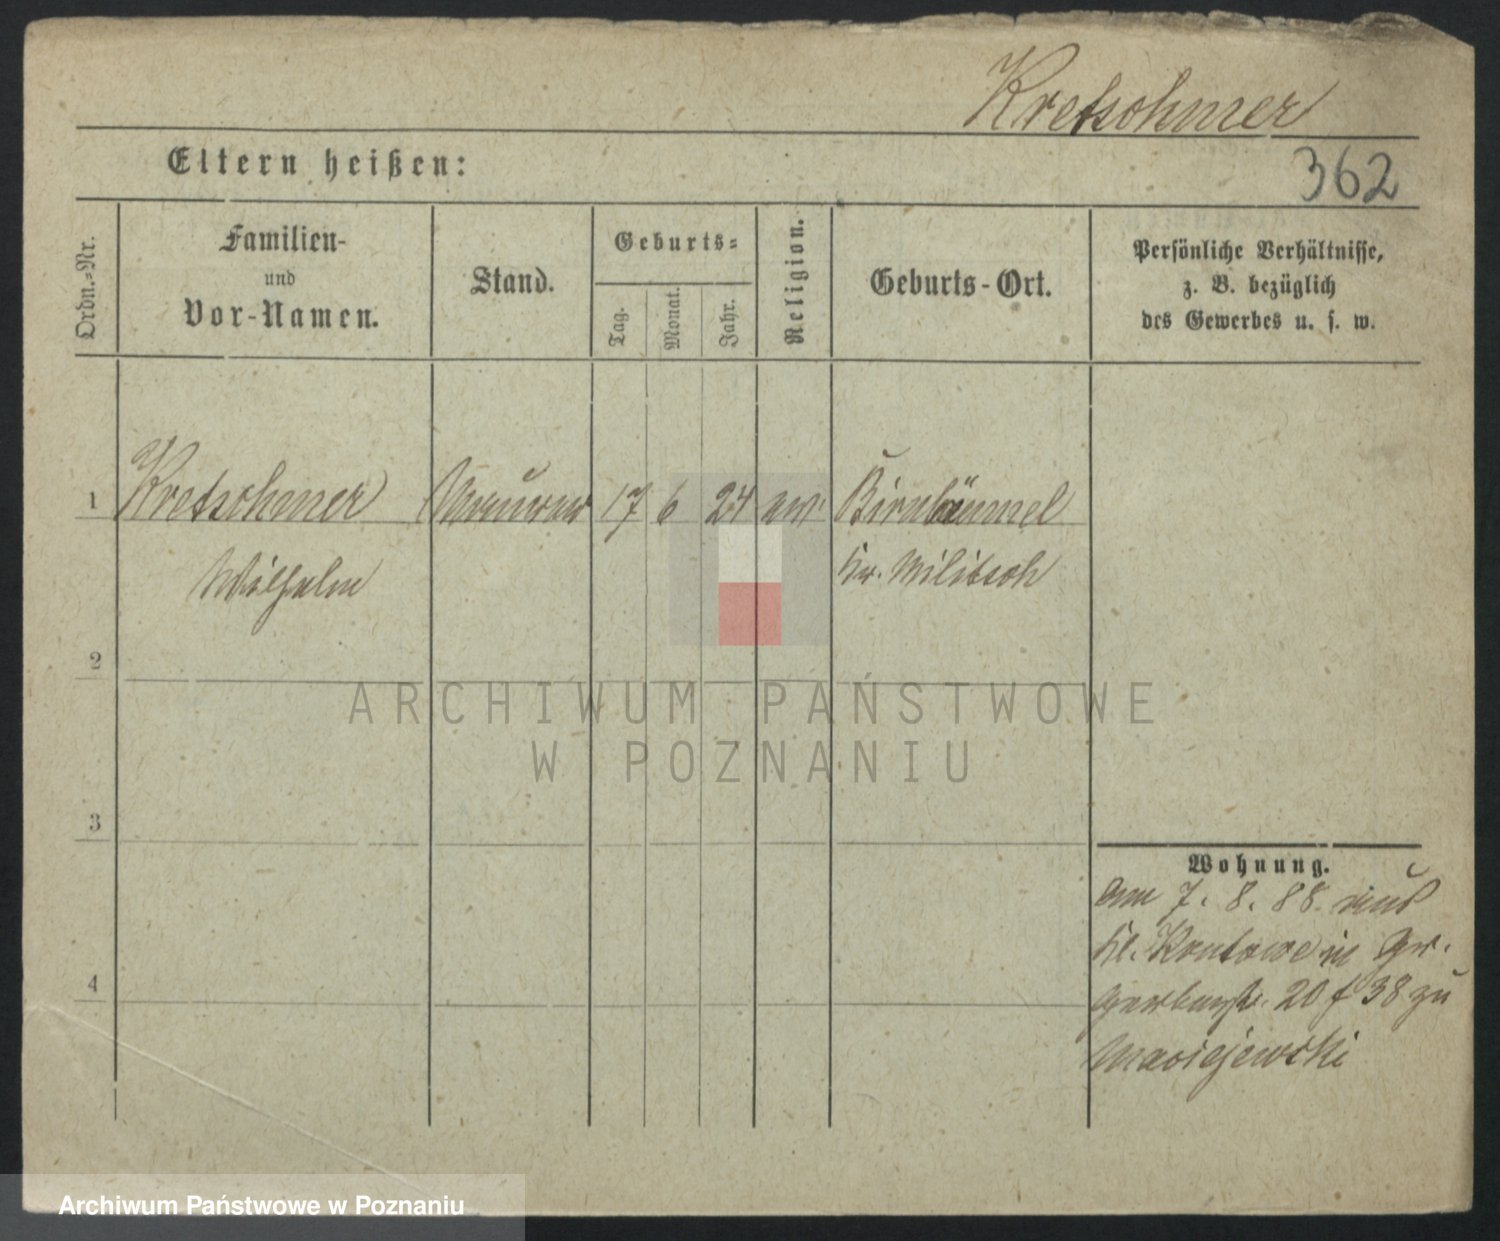 Kretschmer
Eltern heißen:
362
Ordn.-Nr.
Familien-
und
Vor-Namen.
Stand.
Geburts-
Tag.
Monat.
Jahr.
Religion.
Geburts-Ort.
Persönliche Verhältnisse,
z. B. bezüglich
des Gewerbes u. s. w.
1 Kretschmer Maurer 17 6 24 ev. Birnbäumel
Wilhelm Kr. Militsch
2
3
4
Wohnung.
Am 7. 8. 88 aus
Kl. in Gr.
Gerberstr. 20 f 38 zu
Maciejewski
ARCHIWUM PAŃSTWOWE
W POZNANIU
Archiwum Państwowe w Poznaniu